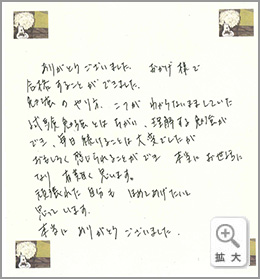 ありがとうございました。 おかげ様で
合格することができました。
勉強のやり方、コツがわからないまましていた
試験勉強とはちがい、理解する勉強が
でき、毎日続けることは大変でしたが
おもしろく感じられることができ 本当にお世話に
なり 有難く思います。
頑張れた自分も ほめてあげたいと
思っています。
本当に ありがとうございました。
拡大